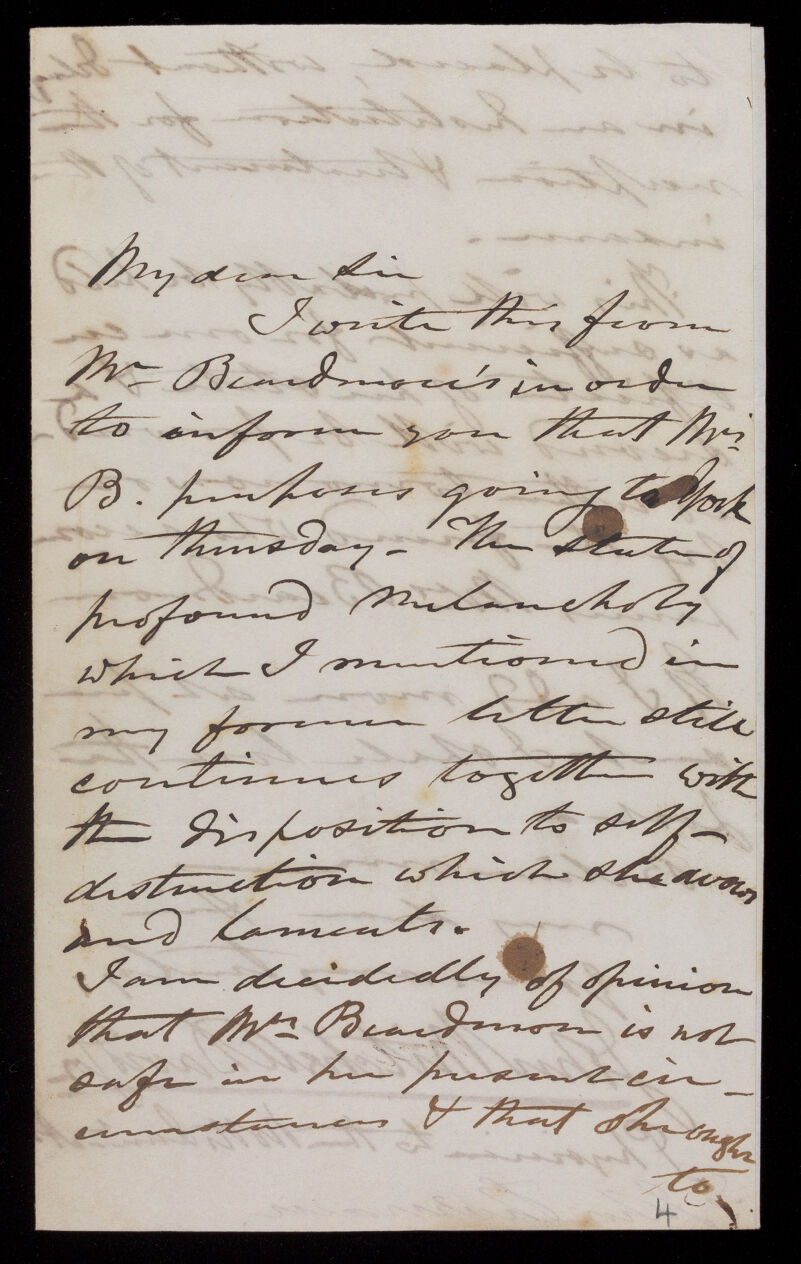 My dear Sir
I write this from
Mr Beardmore's in order
to inform you that Mrs
B. purposes going to York
on Thursday - The state of
profound Melancholy
which I mentioned in
my former letter still
continues together with
the disposition to self-
destruction which she avows
and laments.
I am decidedly of opinion
that Mrs Beardmore is not
safe in her present cir-
cumstances & that she ought
to
4